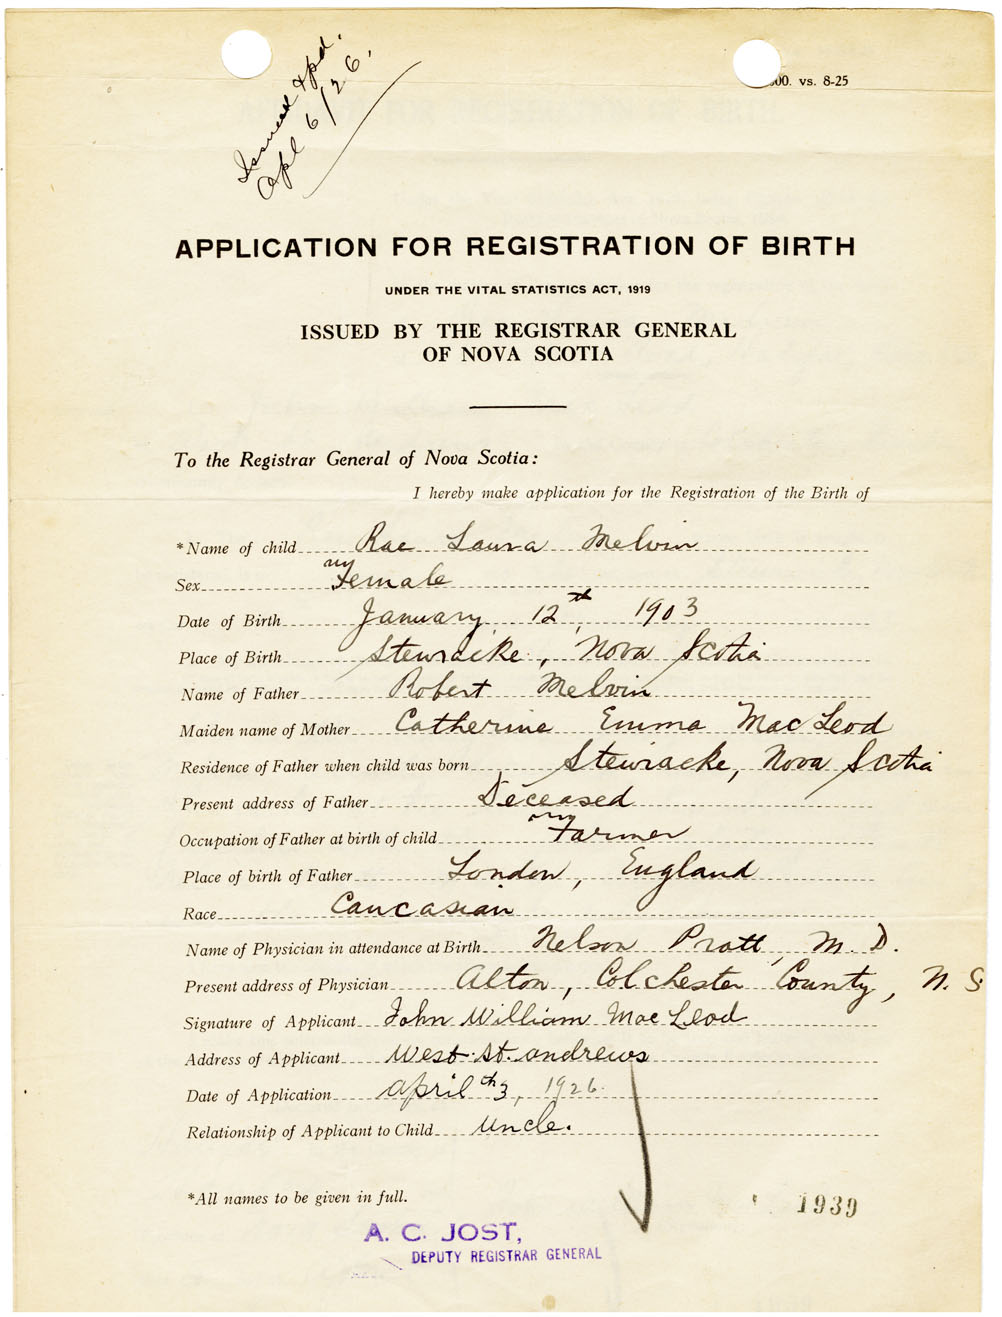 Issued & pd.
Apl 6/26.
00. vs. 8-25
APPLICATION FOR REGISTRATION OF BIRTH
UNDER THE VITAL STATISTICS ACT, 1919
ISSUED BY THE REGISTRAR GENERAL
OF NOVA SCOTIA
To the Registrar General of Nova Scotia:
I hereby make application for the Registration of the Birth of
*Name of child Rae Laura Melvin
Sex Female
Date of Birth January 12th, 1903
Place of Birth Stewiacke, Nova Scotia
Name of Father Robert Melvin
Maiden name of Mother Catherine Emma MacLeod
Residence of Father when child was born Stewiacke, Nova Scotia
Present address of Father Deceased
Occupation of Father at birth of child Farmer
Place of birth of Father London, England
Race Caucasian
Name of Physician in attendance at Birth Nelson Pratt, M. D.
Present address of Physician Alton, Colchester County, N. S.
Signature of Applicant John William MacLeod
Address of Applicant West St. Andrews
Date of Application April 3th, 1926.
Relationship of Applicant to Child Uncle.
*All names to be given in full.
1939
A. C. JOST,
DEPUTY REGISTRAR GENERAL